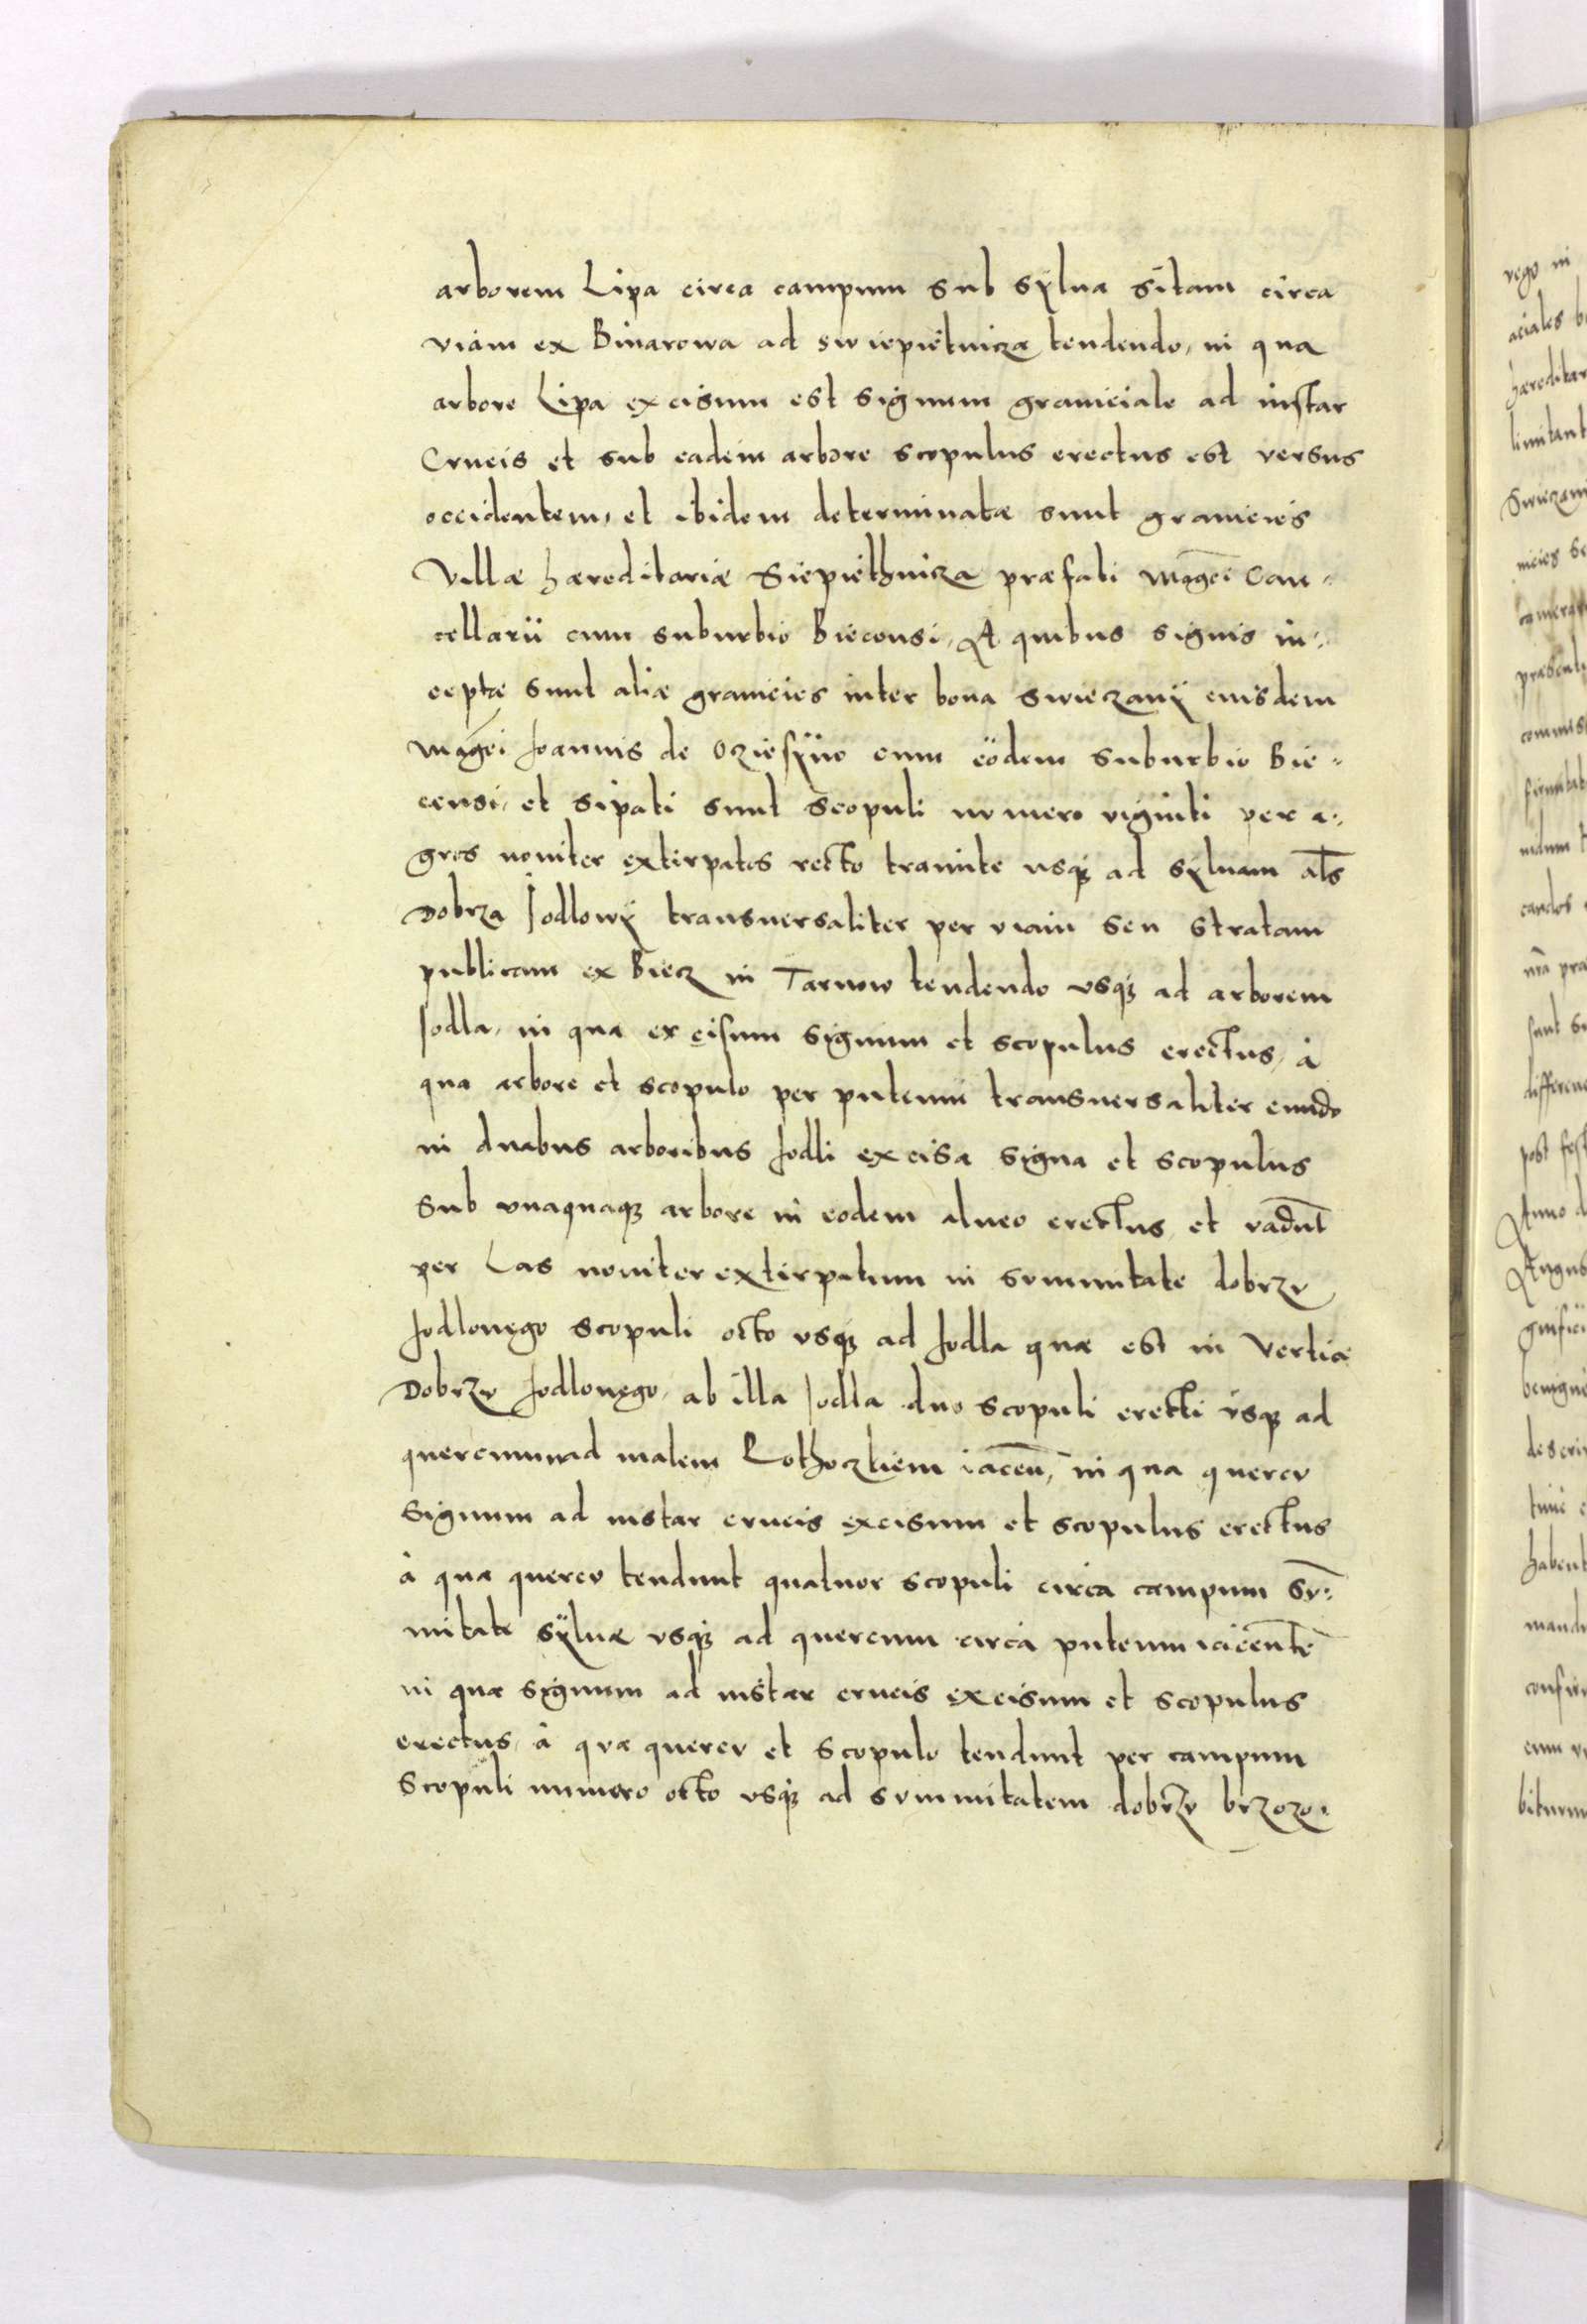 arborem Lipa circa campum sub sylua sitam circa
viam ex Binarowa ad swiepietnicza tendendo, in qua
arbore Lipa excisum est signum graniciale ad instar
Crucis et sub eadem arbore scopulus erectus est versus
occidentem, et ibidem determinatæ sunt granicies
Villæ hæreditariæ Siepiethnicza præfati Magci Can-
cellarii cum suburbio Biecensi, A quibus signis in-
ceptæ sunt aliæ granicies inter bona swieczany eiusdem
Magci Ioannis de Ocziesyno cum eodem suburbio Bie-
censi, et sipati sunt scopuli numero viginti per a-
gros nouiter extirpatos recto tramite usq; ad syluam als
Dobrza Jodlowy transuersaliter per viam seu stratam
publicam ex Biecz in Tarnow tendendo vsq; ad arborem
Jodla, in qua excisum signum et scopulus erectus, à
qua arbore et scopulo per puteum transuersaliter eundo
in duabus arboribus Jodli excisa signa et scopulus
sub vnaquaq; arbore in eodem alueo erectus, et vadunt
per Las nouiter extirpatum in summitate dobrzv
Jodlowego scopuli octo vsq; ad Jodla quæ est in vertice
Dobrzv Jodlowego, ab illa Jodla duo scopuli erecti vsq; ad
quercum ad malem iacen, in qua quercv
Signum ad instar crucis excisum et scopulus erectus
à qua quercv tendunt quatuor scopuli circa campum sv-
mitate syluæ vsq; ad quercum circa puteum iacente
in qua signum ad instar crucis excisum et scopulus
erectus, à qva quercv et scopulo tendunt per campum
Scopuli numero octo vsq; ad svmmitatem dobrzv brzozo-